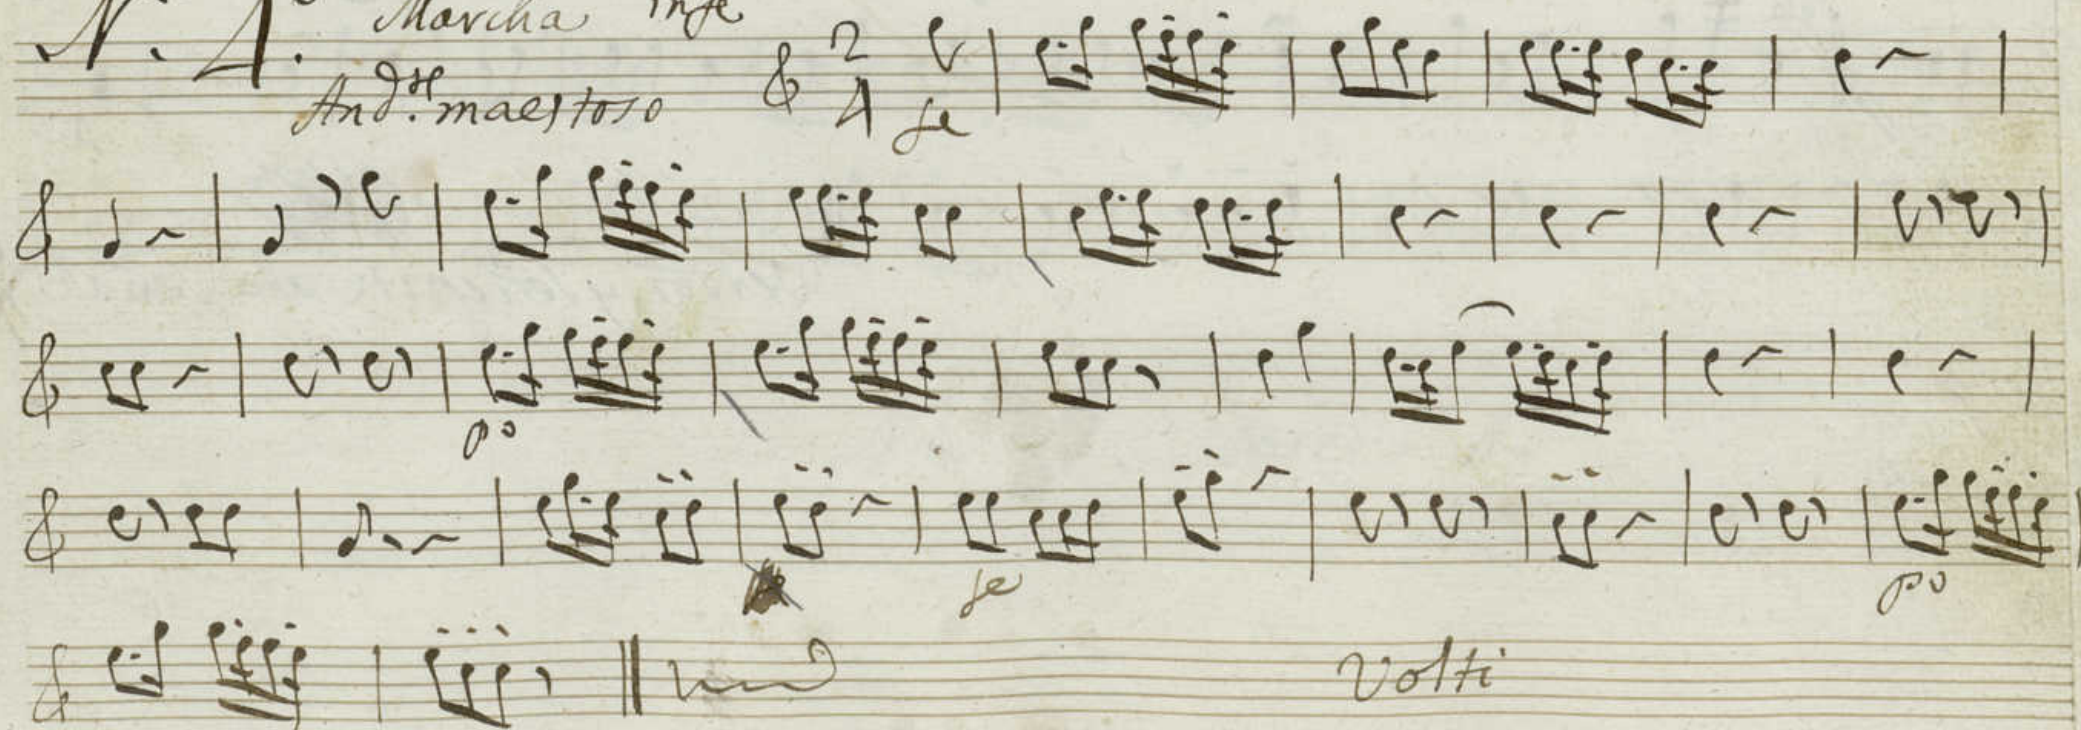 N. 4.º Marcha in fe
And.te maestoso 2 4 fe
po
fe po
Volti